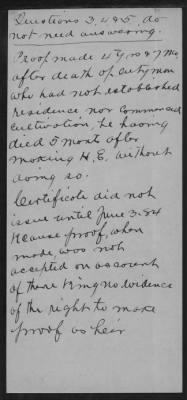 Questions 3, 4 & 5, do
not need answering.
Proof made 4 yrs & 7 Mo
after death of entryman
who had not established
residence nor commenced
cultivation, he having
died 5 mont after
making H.E. without
doing so.
Certificate did not
issue until June 3-84
because proof, when
made, was not
accepted on account
of there being no evidence
of the right to make
proof as heir